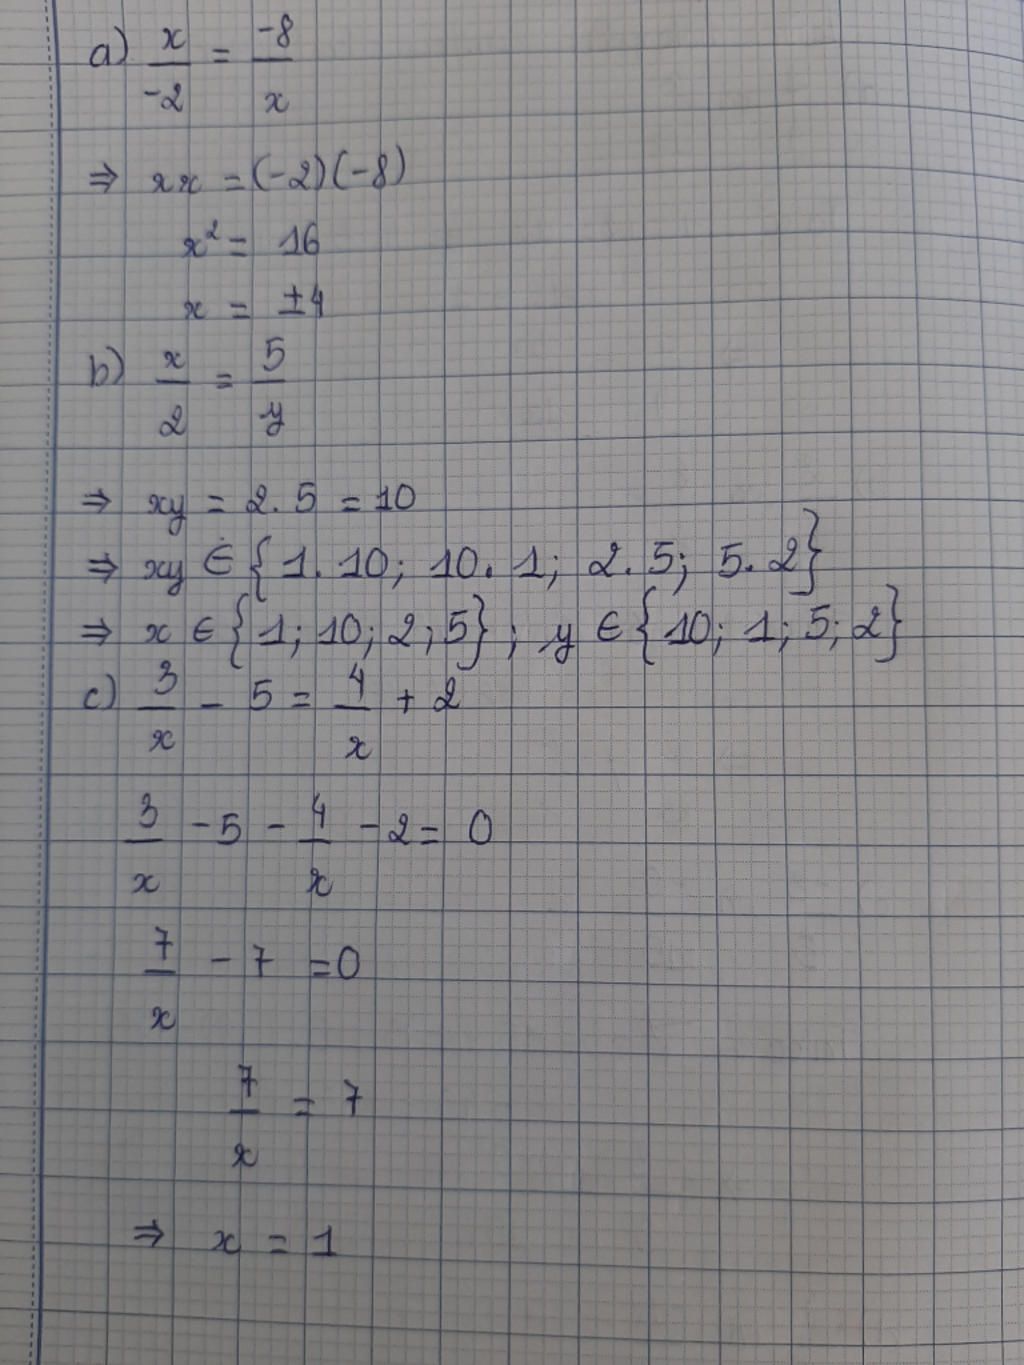 a) x/-2 = -8/x
⇒ xx = (-2)(-8)
x² = 16
x = ±4
b) x/2 = 5/y
⇒ xy = 2.5 = 10
⇒ xy ∈ {1.10; 10.1; 2.5; 5.2}
⇒ x ∈ {1; 10; 2; 5}; y ∈ {10; 1; 5; 2}
c) 3/x - 5 = 4/x + 2
3/x - 5 - 4/x - 2 = 0
7/x - 7 = 0
7/x = 7
⇒ x = 1